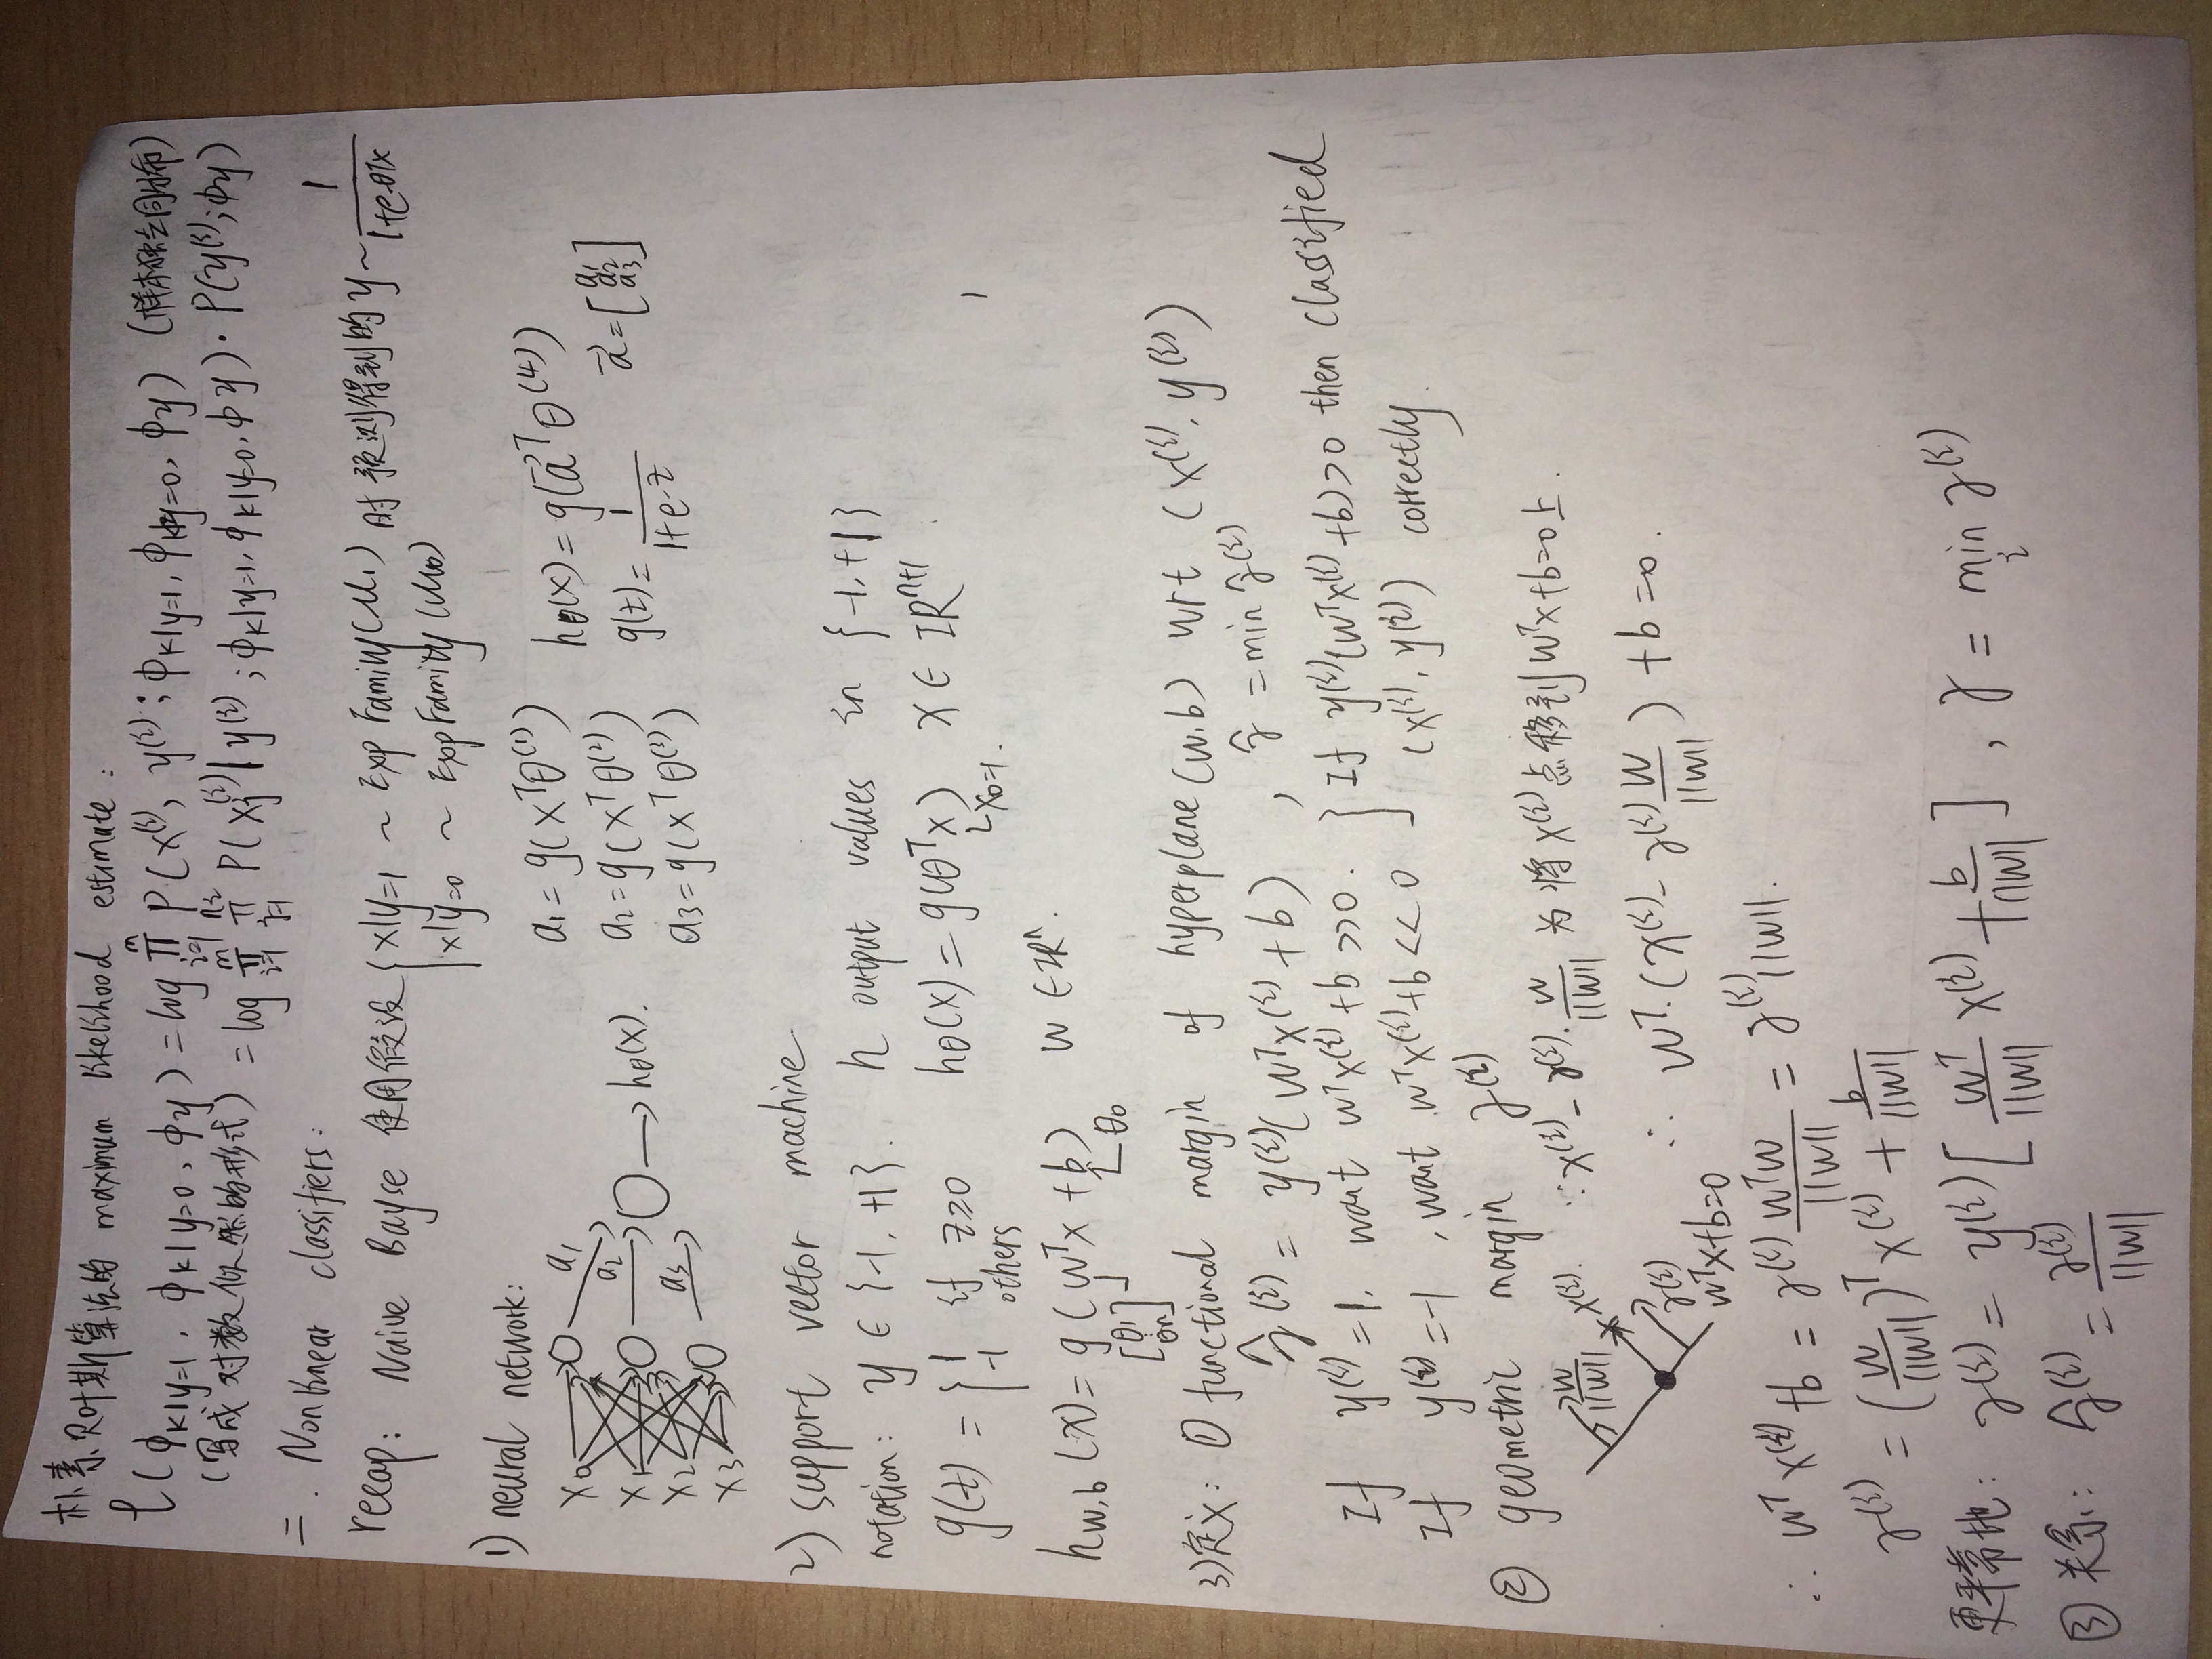 朴素贝叶斯算法的 maximum likelihood estimate:
ℓ(φk|y=1, φk|y=0, φy) = log ∏_{i=1}^{m} P(x^(i), y^(i); φk|y=1, φk|y=0, φy) (样本独立同分布)
(写成对数似然的形式) = log ∏_{i=1}^{m} ∏_{j=1}^{ni} P(xj^(i)|y^(i); φk|y=1, φk|y=0, φy)·P(y^(i); φy)
二. Nonlinear classifiers:
recap: Naive Bayse 使用假设 { x|y=1 ~ Exp Family(μ1) 时预测得到的 y ~ 1/(1+e^-θTx)
x|y=0 ~ Exp Family(μ0)
1) neural network:
x0 x1 x2 x3 a1 a2 a3 → hθ(x).
a1 = g(x^Tθ^(1)) hθ(x) = g(a⃗^Tθ^(4))
a2 = g(x^Tθ^(2)) g(z) = 1/(1+e^-z) a⃗ = [a1 a2 a3]
a3 = g(x^Tθ^(3))
2) support vector machine
notation: y ∈ {-1, +1}. h output values in {-1, +1}
g(z) = { 1 if z≥0 hθ(x) = g(θ^Tx) x ∈ IR^n+1
-1 others x0=1.
hw,b(x) = g(w^Tx + b) w ∈ IR^n.
[θ1 ⋮ θn] θ0
3) 定义: ① functional margin of hyperplane (w,b) wrt (x^(i), y^(i))
γ̂^(i) = y^(i)(w^Tx^(i) + b), γ̂ = min γ̂^(i)
If y^(i) = 1, want w^Tx^(i) + b >> 0. } If y^(i)(w^Tx^(i) + b) > 0 then classified
If y^(i) = -1, want w^Tx^(i) + b << 0 (x^(i), y^(i)) correctly.
② geometric margin γ^(i)
w/||w|| x^(i). ∵ x^(i) - γ^(i)·w/||w|| 为将 x^(i) 点移到 w^Tx+b=0上.
γ^(i) ∴ w^T·(x^(i) - γ^(i) w/||w||) + b = 0.
w^Tx+b=0
∴ w^Tx^(i) + b = γ^(i) w^Tw/||w|| = γ^(i)||w||.
γ^(i) = (w/||w||)^T x^(i) + b/||w||
更平常地: γ^(i) = y^(i)[w^T/||w|| x^(i) + b/||w||], γ = min_i γ^(i)
③ 关系: γ̂^(i) = γ^(i)/||w||